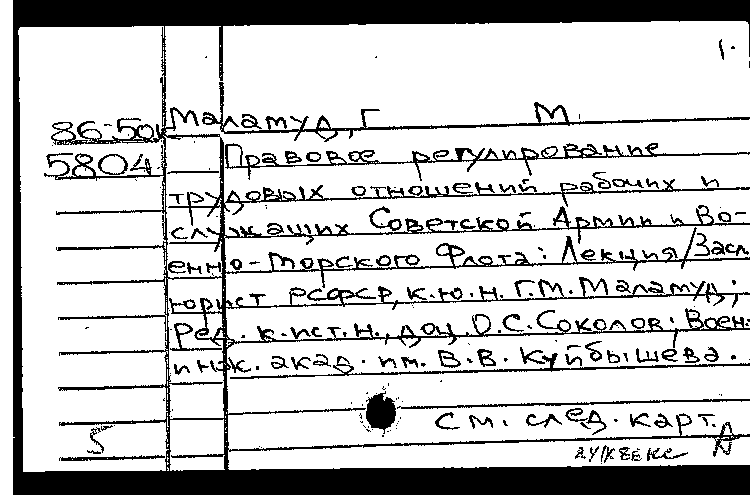 1.
86-50к Маламуд, Г. М.
5804 Правовое регулирование
трудовых отношений рабочих и
служащих Советской Армии и Во-
енно-Морского Флота: Лекция/Засл.
юрист РСФСР, к.ю.н. Г.М. Маламуд;
Ред. к.ист.н., доц. О.С. Соколов; Воен.-
инж. акад. им. В.В. Куйбышева.
см. след. карт.
5